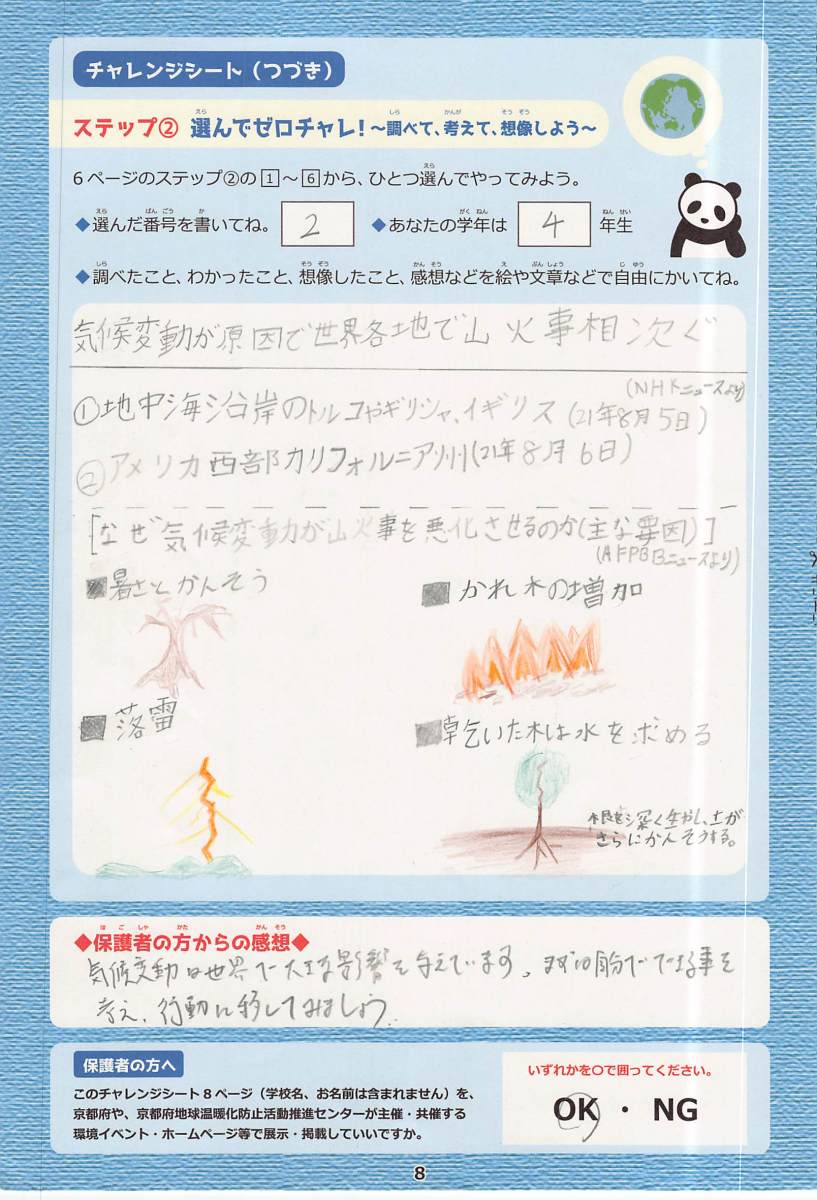 チャレンジシート（つづき）
ステップ② 選んでゼロチャレ！～調べて、考えて、想像しよう～
6ページのステップ②の1～6から、ひとつ選んでやってみよう。
◆選んだ番号を書いてね。 2 ◆あなたの学年は 4 年生
◆調べたこと、わかったこと、想像したこと、感想などを絵や文章などで自由にかいてね。
気候変動が原因で世界各地で山火事相次ぐ
(NHKニュースより)
①地中海沿岸のトルコやギリシャ、イギリス(21年8月5日)
②アメリカ西部カリフォルニア州(21年8月6日)
[なぜ気候変動が山火事を悪化させるのか(主な要因)]
(AFPBBニュースより)
■暑さとかんそう ■かれ木の増加
■落雷 ■乾いた木は水を求める
根を深く生やし、土が
さらにかんそうする。
◆保護者の方からの感想◆
気候変動は世界で大きな影響を与えています。まずは自分でできる事を
考え、行動に移してみましょう。
保護者の方へ
このチャレンジシート8ページ（学校名、お名前は含まれません）を、
京都府や、京都府地球温暖化防止活動推進センターが主催・共催する
環境イベント・ホームページ等で展示・掲載していいですか。
いずれかを○で囲ってください。
OK ・ NG
8